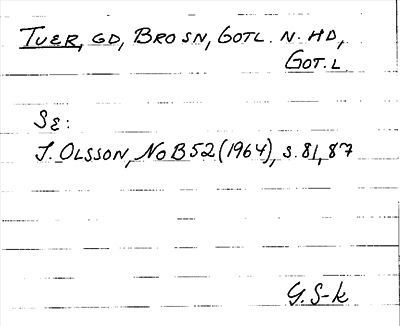 TUER, GD, BRO SN, GOTL. N. HD,
GOT.L.
SE:
I. OLSSON, NOB 52 (1964), S. 81, 87
G. S-k